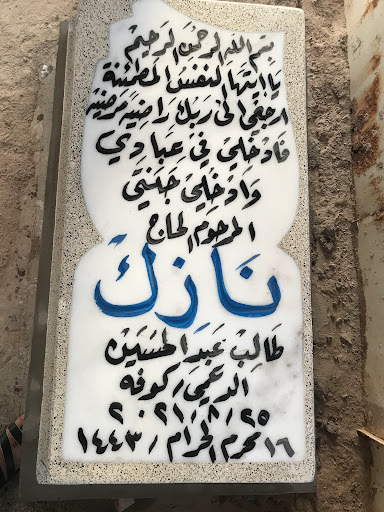 بسم الله الرحمن الرحيم
يا ايتها النفس المطمئنة
ارجعي الى ربك راضية مرضيه
فادخلي في عبادي
وادخلي جنتي
المرحوم الحاج
نازك
طالب عبد الحسين
الدعمي / كوفه
٢٠٢١/٨/٢٥
١٦ محرم الحرام / ١٤٤٣